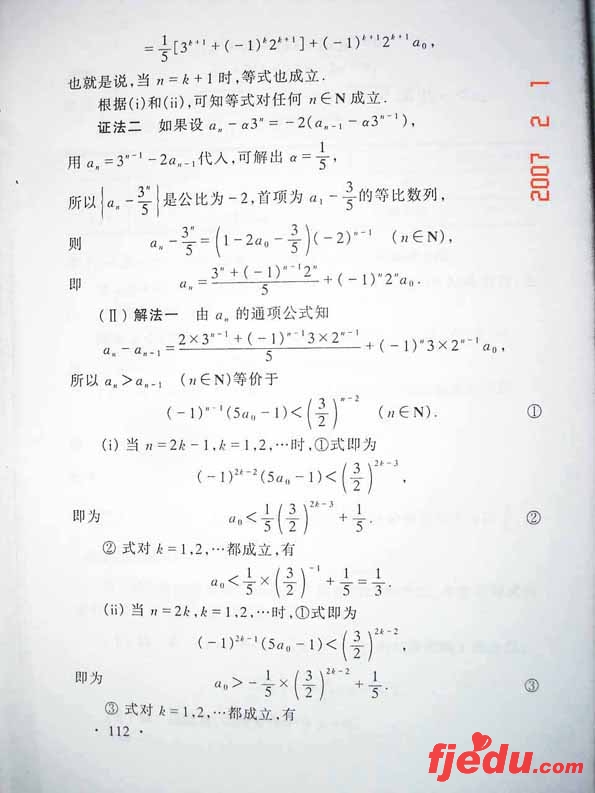 = 1/5[3^{k+1} + (-1)^k 2^{k+1}] + (-1)^{k+1} 2^{k+1} a₀,
也就是说,当 n = k + 1 时,等式也成立.
根据(i)和(ii),可知等式对任何 n∈N 成立.
证法二 如果设 aₙ - α3ⁿ = -2(aₙ₋₁ - α3^{n-1}),
用 aₙ = 3^{n-1} - 2aₙ₋₁代入,可解出 α = 1/5,
所以{aₙ - 3ⁿ/5}是公比为 -2,首项为 a₁ - 3/5的等比数列,
则 aₙ - 3ⁿ/5 = (1 - 2a₀ - 3/5)(-2)^{n-1} (n∈N),
即 aₙ = (3ⁿ + (-1)^{n-1}2ⁿ)/5 + (-1)ⁿ2ⁿa₀.
(Ⅱ) 解法一 由 aₙ 的通项公式知
aₙ - aₙ₋₁ = (2×3^{n-1} + (-1)^{n-1}3×2^{n-1})/5 + (-1)ⁿ3×2^{n-1}a₀,
所以 aₙ > aₙ₋₁ (n∈N)等价于
(-1)^{n-1}(5a₀ - 1) < (3/2)^{n-2} (n∈N). ①
(i) 当 n = 2k - 1, k = 1,2,…时,①式即为
(-1)^{2k-2}(5a₀ - 1) < (3/2)^{2k-3},
即为 a₀ < 1/5(3/2)^{2k-3} + 1/5. ②
② 式对 k = 1,2,…都成立,有
a₀ < 1/5 × (3/2)^{-1} + 1/5 = 1/3.
(ii) 当 n = 2k, k = 1,2,…时,①式即为
(-1)^{2k-1}(5a₀ - 1) < (3/2)^{2k-2},
即为 a₀ > -1/5 × (3/2)^{2k-2} + 1/5. ③
③ 式对 k = 1,2,…都成立,有
· 112 ·
2007 2 1
fjedu.com